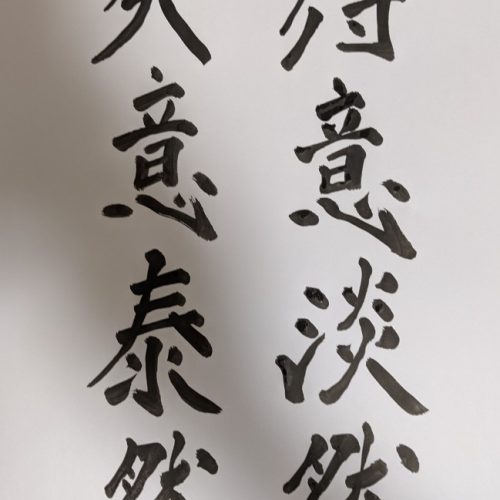 得意淡然
失意泰然